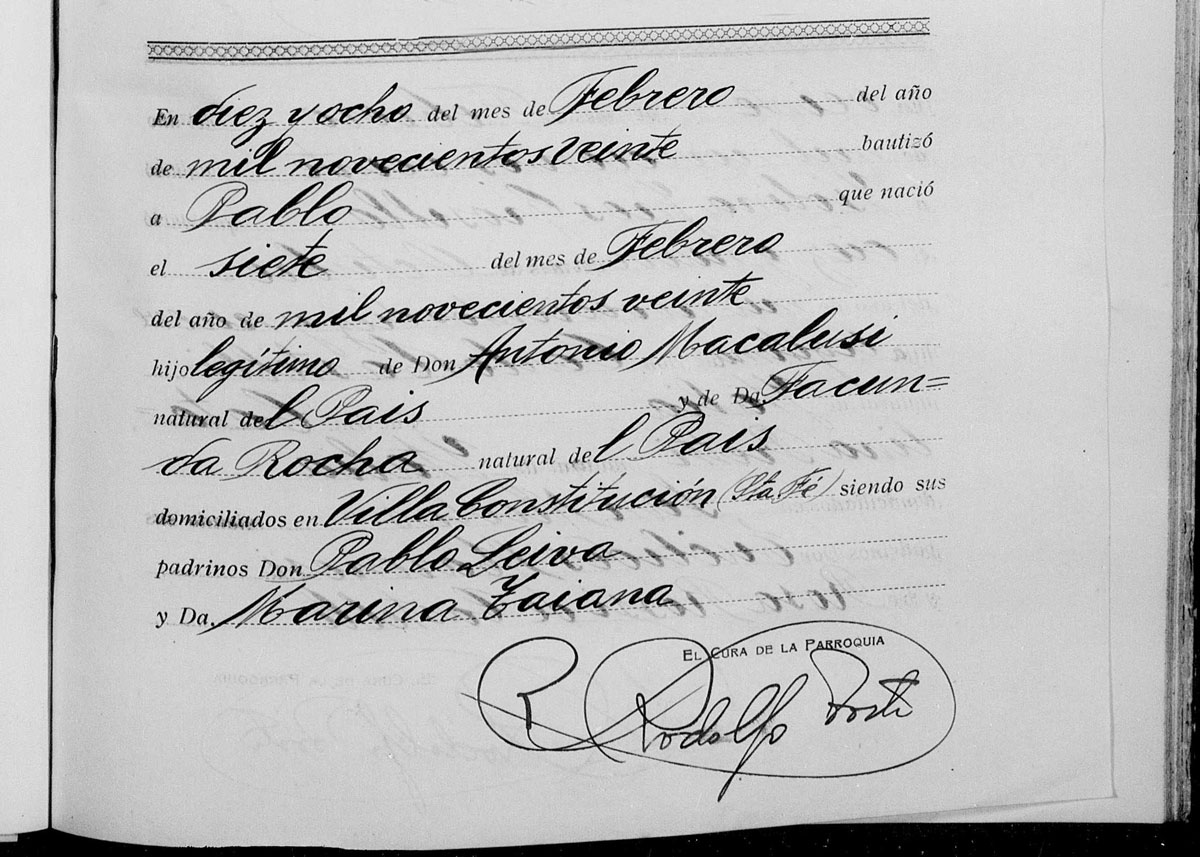 En diez y ocho del mes de Febrero del año
de mil novecientos veinte bautizó
a Pablo que nació
el siete del mes de Febrero
del año de mil novecientos veinte
hijo legítimo de Don Antonio Macalusi
natural del Pais y de Da Facun=
da Rocha natural del Pais
domiciliados en Villa Constitución (Sta Fé) siendo sus
padrinos Don Pablo Leiva
y Da. Marina Zaiana
EL CURA DE LA PARROQUIA
R Rodolfo